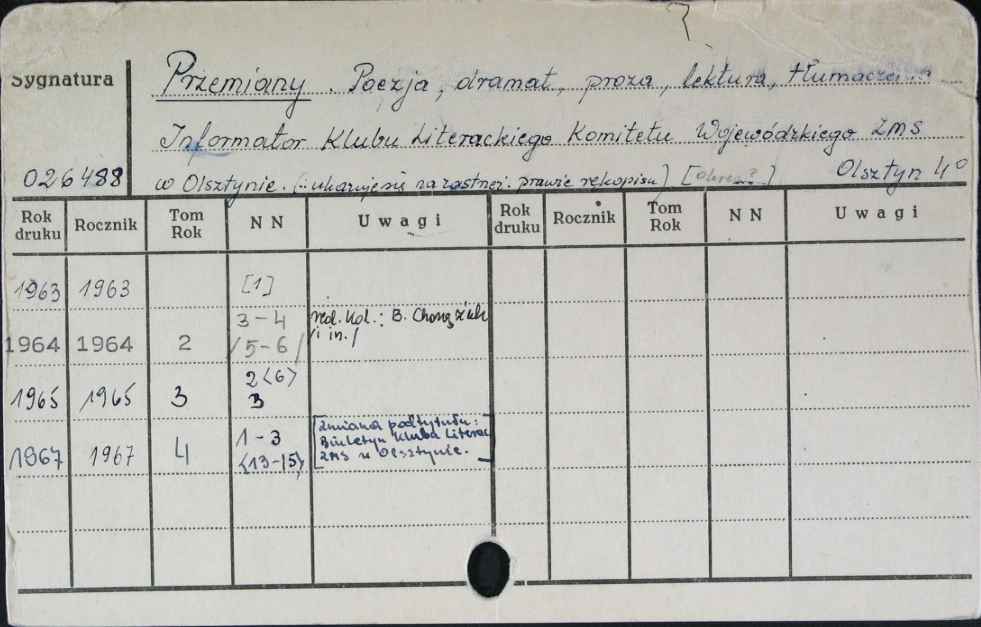 Sygnatura
Przemiany. Poezja, dramat, proza, lektura,
Informator Klubu Literackiego Komitetu Wojewódzkiego ZMS
026488 w Olsztynie. ukazuje się na prawie rękopisu) [okres.?] Olsztyn 4°
Rok druku Rocznik Tom Rok N N Uwagi Rok druku Rocznik Tom Rok N N Uwagi
1963 1963 [1]
1964 1964 2 3-4 /5-6/ red. kol.: B. /i in./
1965 1965 3 2<6> 3
1967 1967 4 1-3 <13-15> [Zmiana podtytułu: Biuletyn Klubu Literac ZMS w Olsztynie.]